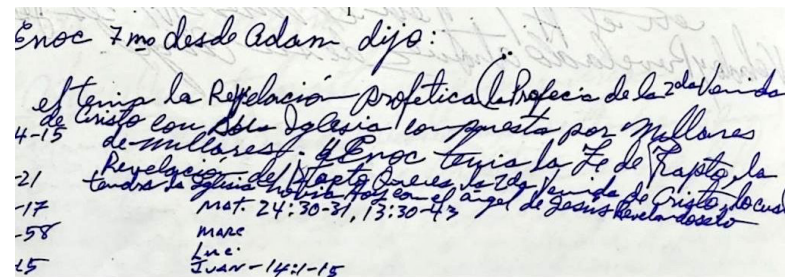 Enoc 7mo desde Adam dijo:
el tenia la Revelación profetica (la Profecia de la 2da Venida
de Cristo con Iglesia compuesta por Millares
4-15 de millares). y Enoc tenia la Fe de Rapto, la
-21 Revelacion del Rapto que es la 2da Venida de Cristo, lo cual
tendra la Iglesia novia hoy con el angel de Jesus Revelandoselo
-17 Mat. 24:30-31, 13:30-43
-58 Marc
Luc.
15 Juan-14:1-15